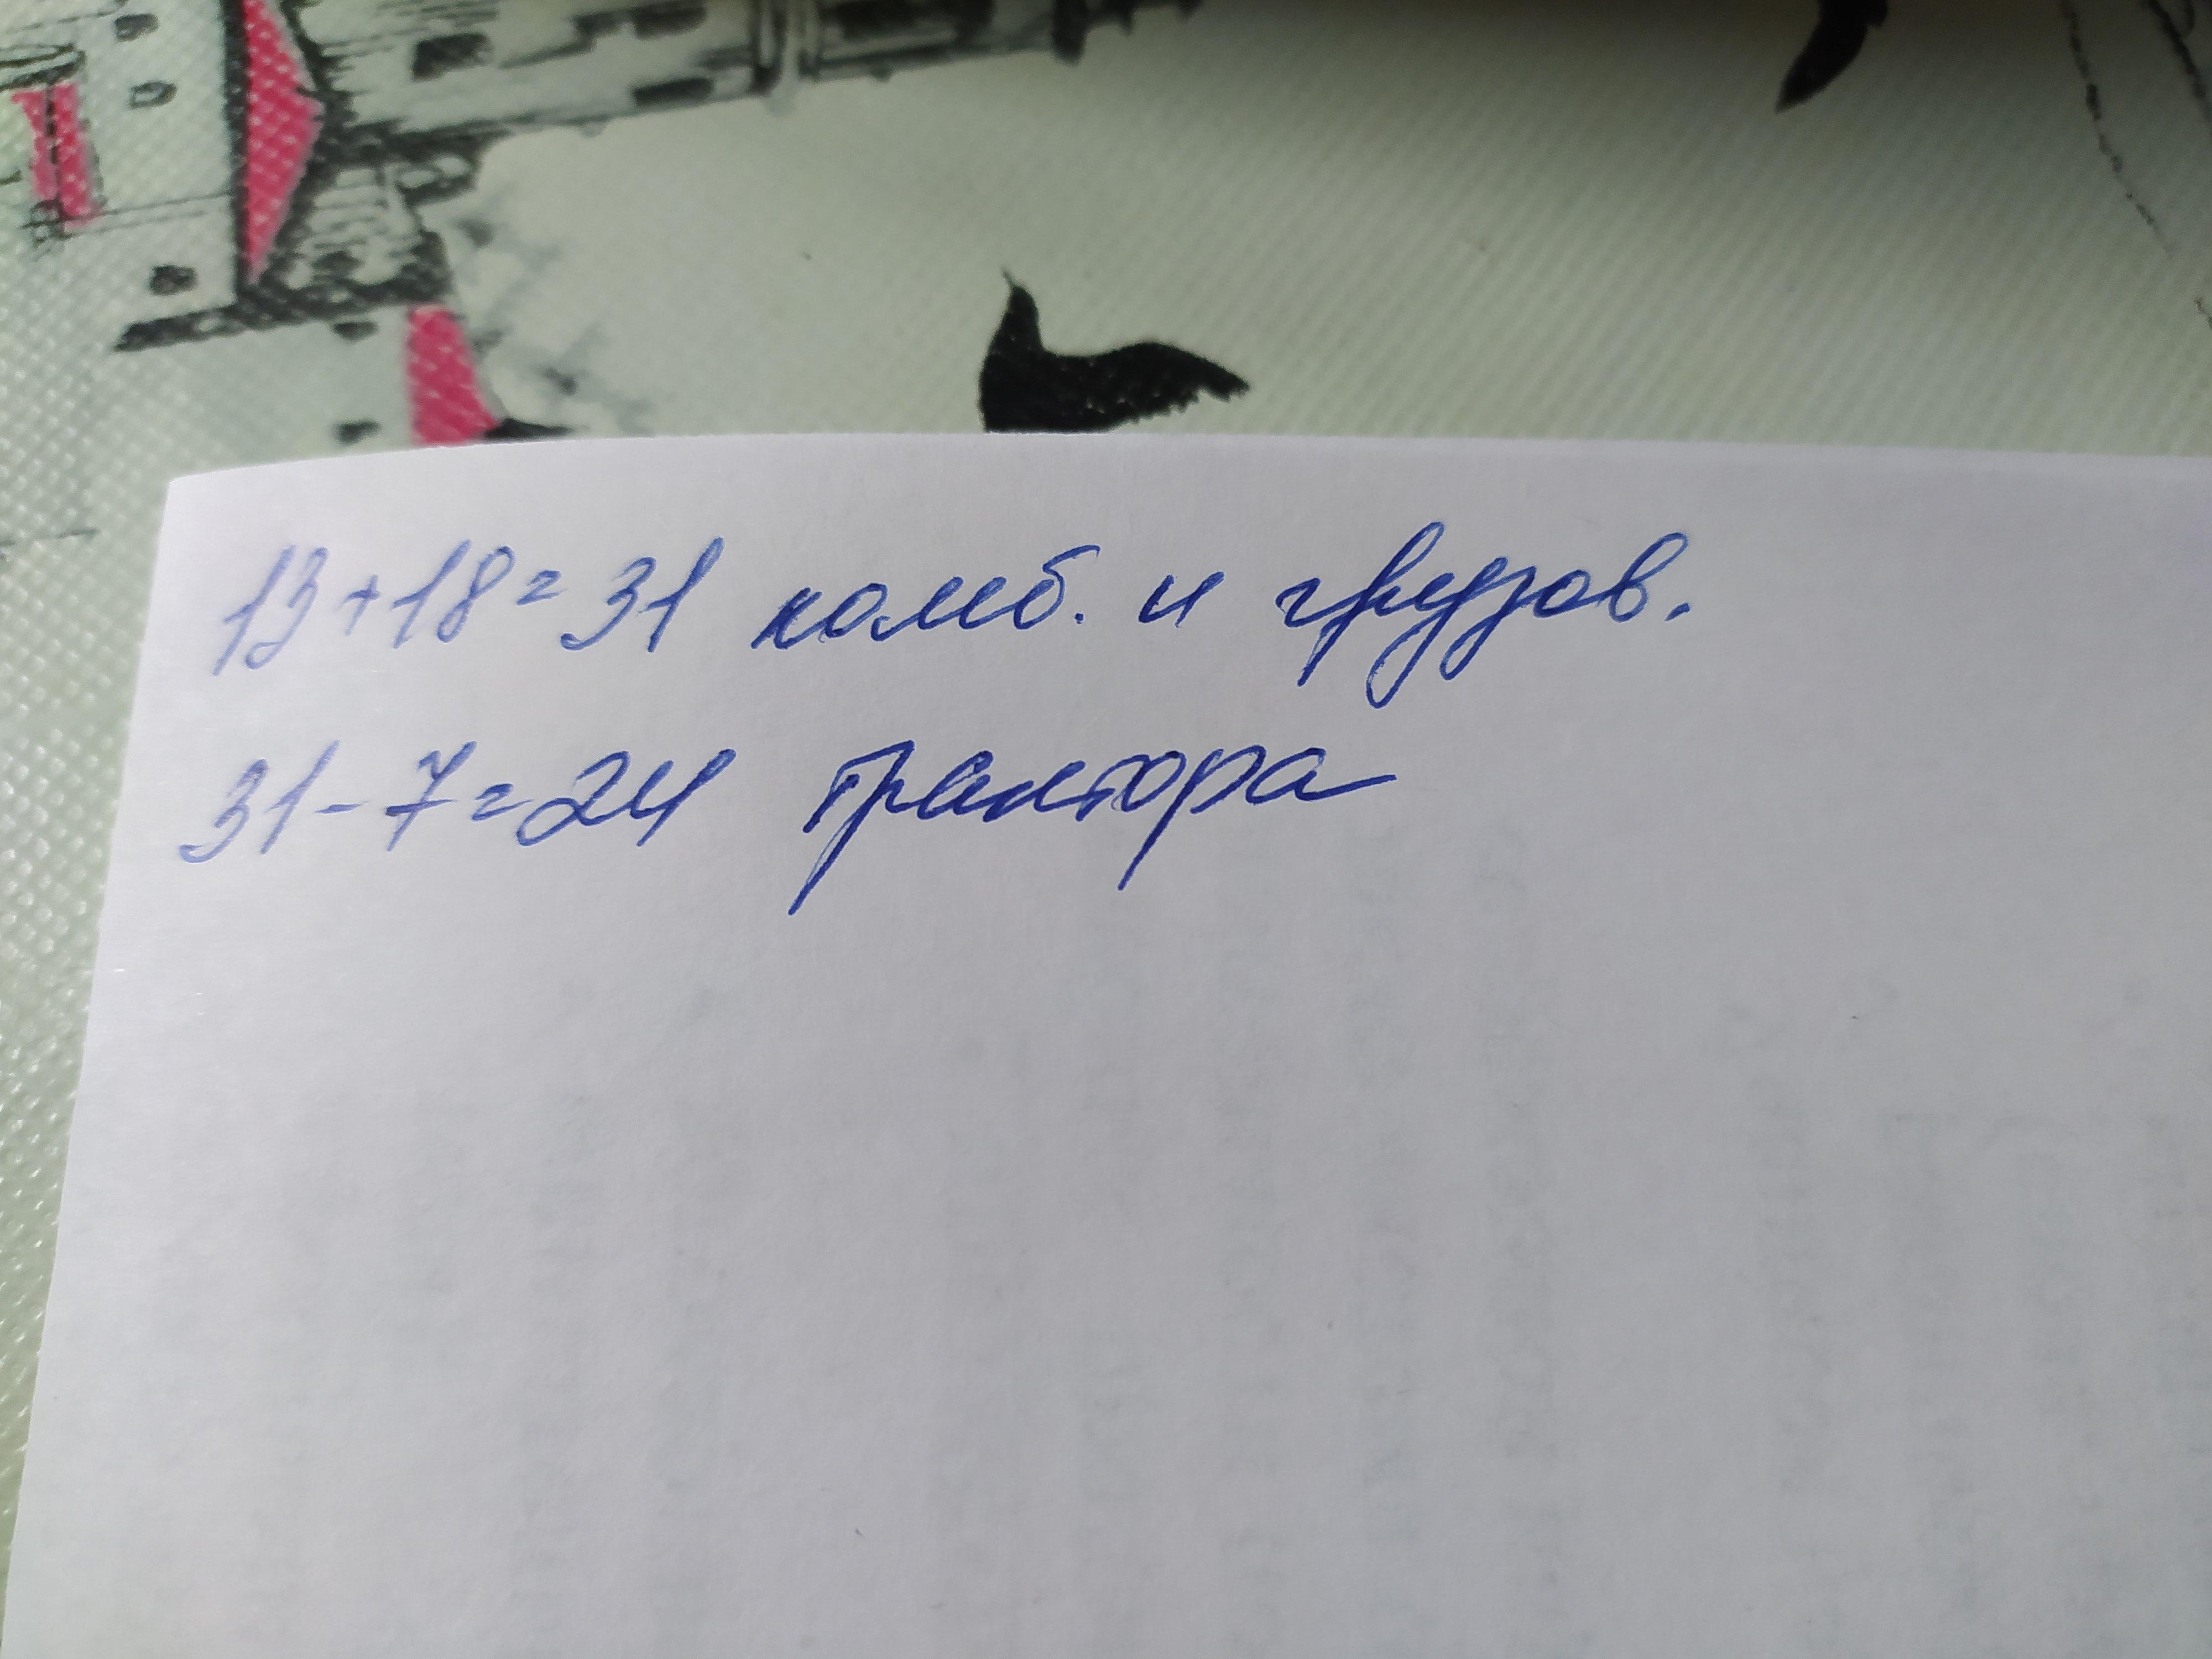 13+18=31 комб. и грузов.
31-7=24 трактора